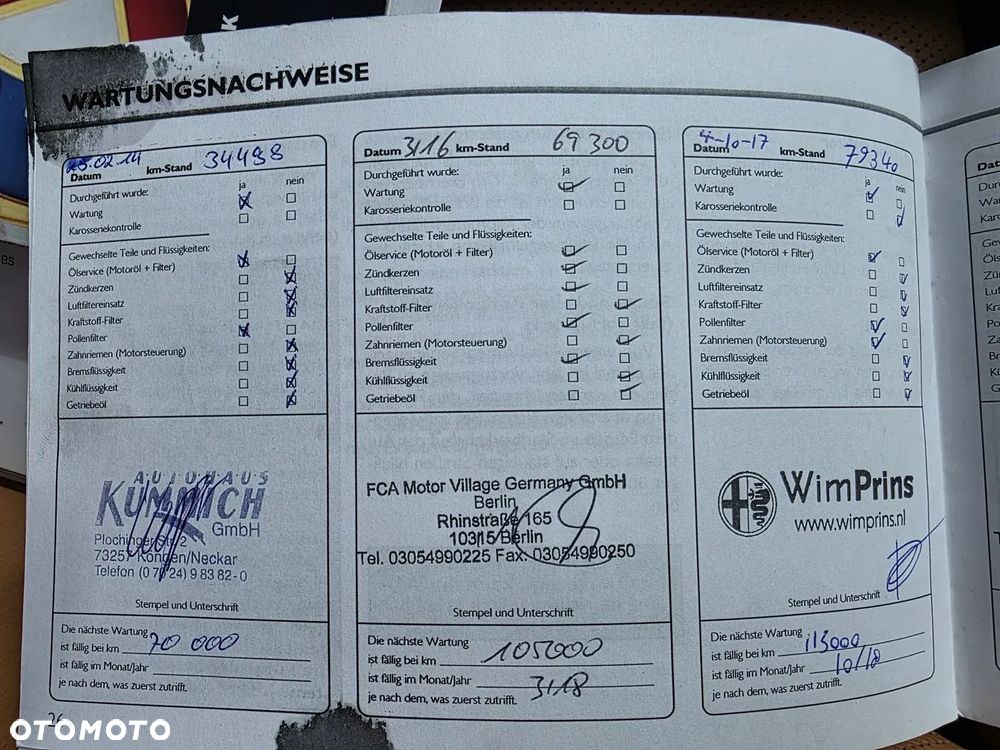 WARTUNGSNACHWEISE
25.02.14 km-Stand 34498
Datum
ja nein
Durchgeführt wurde:
Wartung
Karosseriekontrolle
Gewechselte Teile und Flüssigkeiten:
Ölservice (Motoröl + Filter)
Zündkerzen
Luftfiltereinsatz
Kraftstoff-Filter
Pollenfilter
Zahnriemen (Motorsteuerung)
Bremsflüssigkeit
Kühlflüssigkeit
Getriebeöl
AUTOHAUS
KÜMMICH
GmbH
Plochinger Str. 2
73257 Köngen/Neckar
Telefon (0 70 24) 9 83 82-0
Stempel und Unterschrift
Die nächste Wartung
ist fällig bei km 70 000
ist fällig im Monat/Jahr
je nach dem, was zuerst zutrifft.
26
Datum 3/16 km-Stand 69 300
ja nein
Durchgeführt wurde:
Wartung
Karosseriekontrolle
Gewechselte Teile und Flüssigkeiten:
Ölservice (Motoröl + Filter)
Zündkerzen
Luftfiltereinsatz
Kraftstoff-Filter
Pollenfilter
Zahnriemen (Motorsteuerung)
Bremsflüssigkeit
Kühlflüssigkeit
Getriebeöl
FCA Motor Village Germany GmbH
Berlin
Rhinstraße 165
10315 Berlin
Tel. 03054990225 Fax: 03054990250
Stempel und Unterschrift
Die nächste Wartung
ist fällig bei km 105000
ist fällig im Monat/Jahr 3/18
je nach dem, was zuerst zutrifft.
4-10-17
Datum km-Stand 79340
ja nein
Durchgeführt wurde:
Wartung
Karosseriekontrolle
Gewechselte Teile und Flüssigkeiten:
Ölservice (Motoröl + Filter)
Zündkerzen
Luftfiltereinsatz
Kraftstoff-Filter
Pollenfilter
Zahnriemen (Motorsteuerung)
Bremsflüssigkeit
Kühlflüssigkeit
Getriebeöl
WimPrins
www.wimprins.nl
Stempel und Unterschrift
Die nächste Wartung
ist fällig bei km 113000
ist fällig im Monat/Jahr 10/18
je nach dem, was zuerst zutrifft.
OTOMOTO